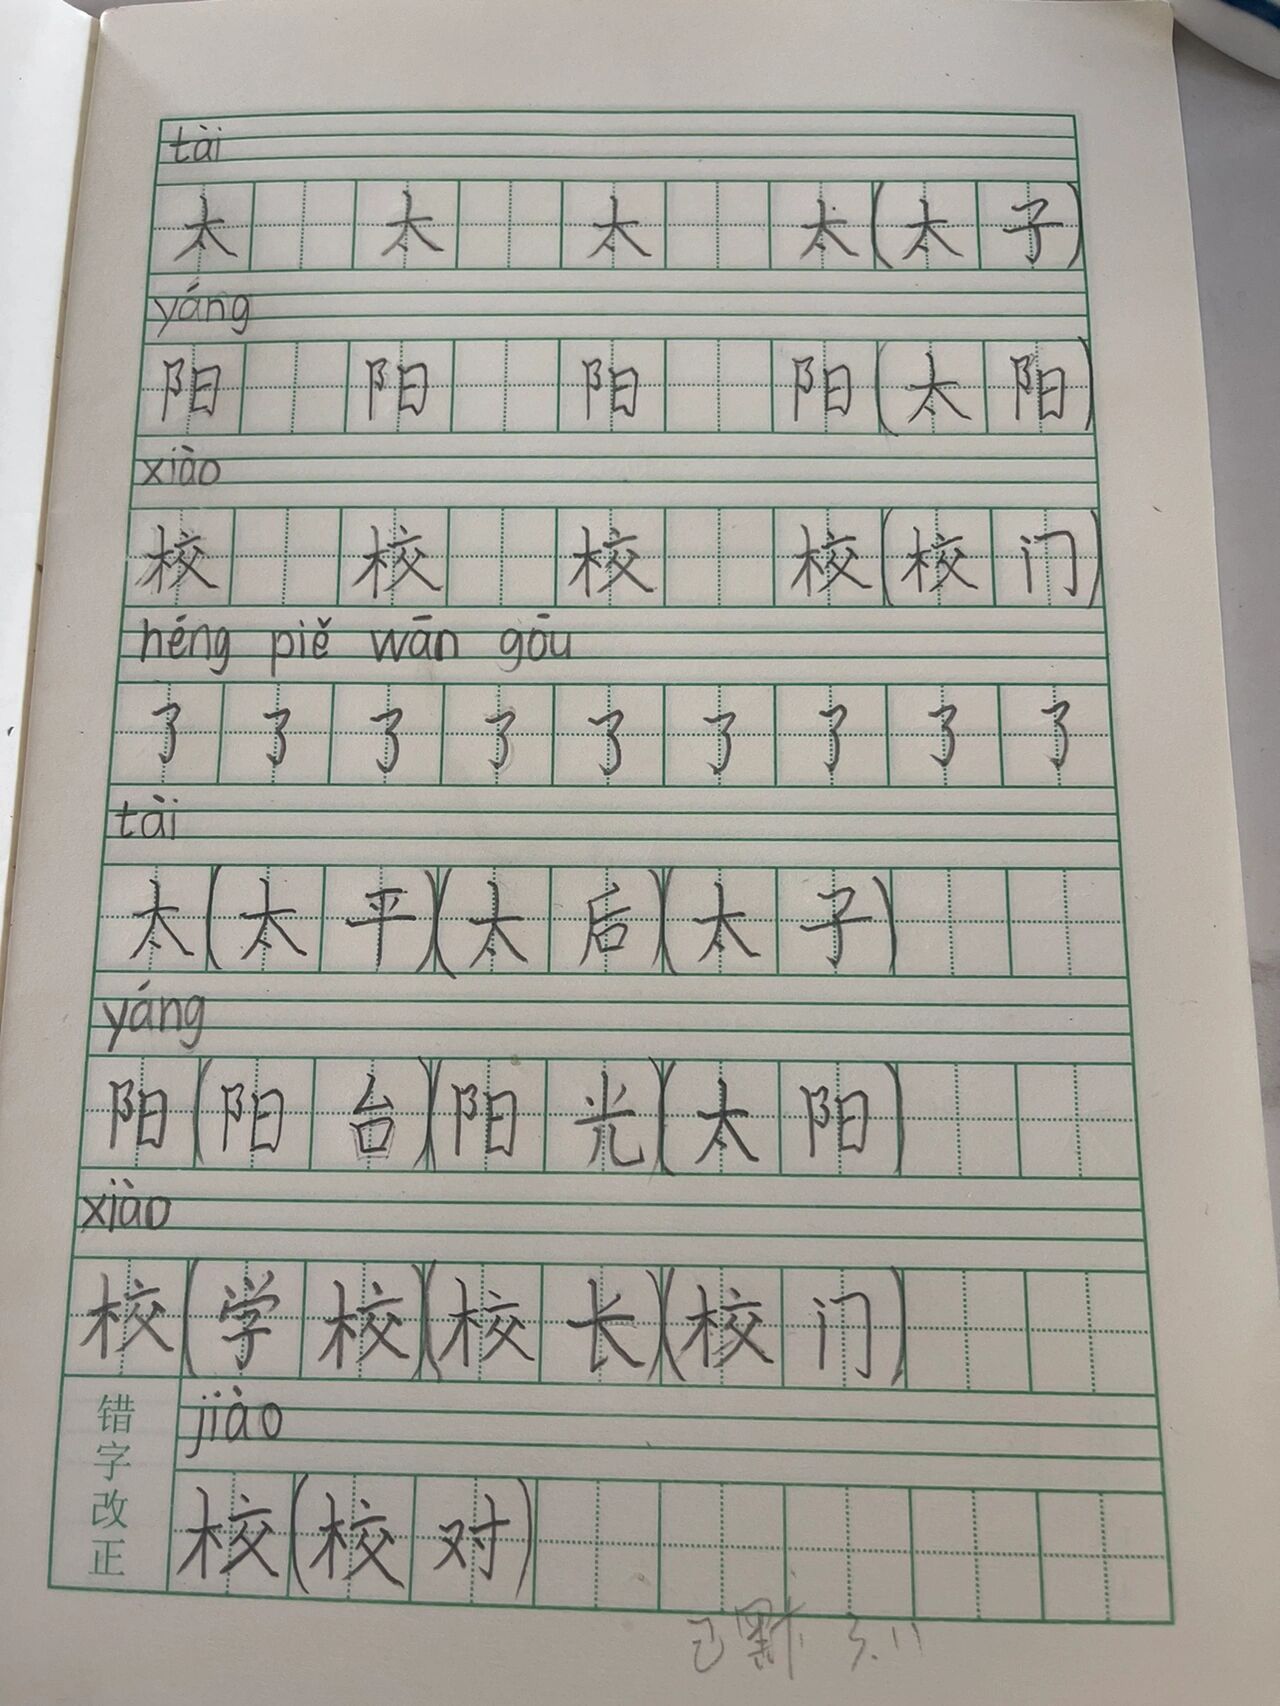 tài
太 太 太 太(太子)
yáng
阳 阳 阳 阳(太阳)
xiào
校 校 校 校(校门)
héng piě wān gōu
了 了 了 了 了 了 了 了 了
tài
太(太平)(太后)(太子)
yáng
阳(阳台)(阳光)(太阳)
xiào
校(学校)(校长)(校门)
错字改正
jiào
校(校对)
已默 3.11